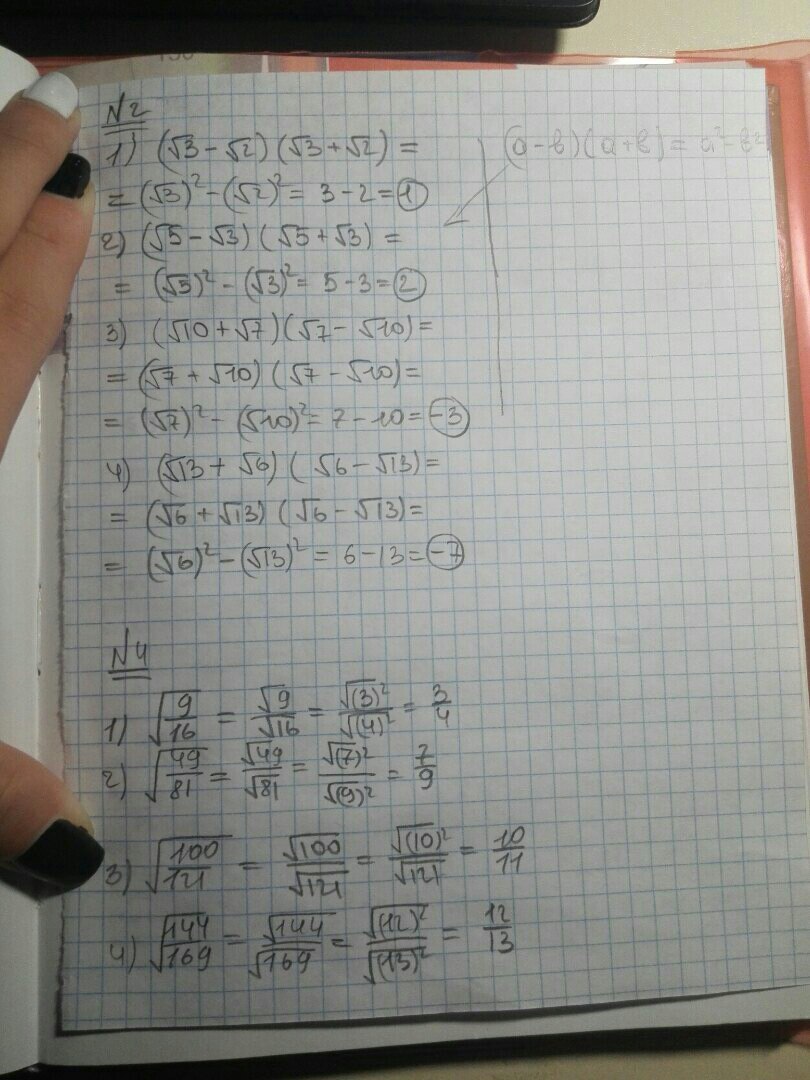 №2
1) (√3 − √2)(√3 + √2) =
= (√3)² − (√2)² = 3 − 2 = 1
(a − b)(a + b) = a² − b²
2) (√5 − √3)(√5 + √3) =
= (√5)² − (√3)² = 5 − 3 = 2
3) (√10 + √7)(√7 − √10) =
= (√7 + √10)(√7 − √10) =
= (√7)² − (√10)² = 7 − 10 = −3
4) (√13 + √6)(√6 − √13) =
= (√6 + √13)(√6 − √13) =
= (√6)² − (√13)² = 6 − 13 = −7
№4
1) √(9/16) = √9/√16 = √(3)²/√(4)² = 3/4
2) √(49/81) = √49/√81 = √(7)²/√(9)² = 7/9
3) √(100/121) = √100/√121 = √(10)²/√121 = 10/11
4) √(144/169) = √144/√169 = √(12)²/√(13)² = 12/13